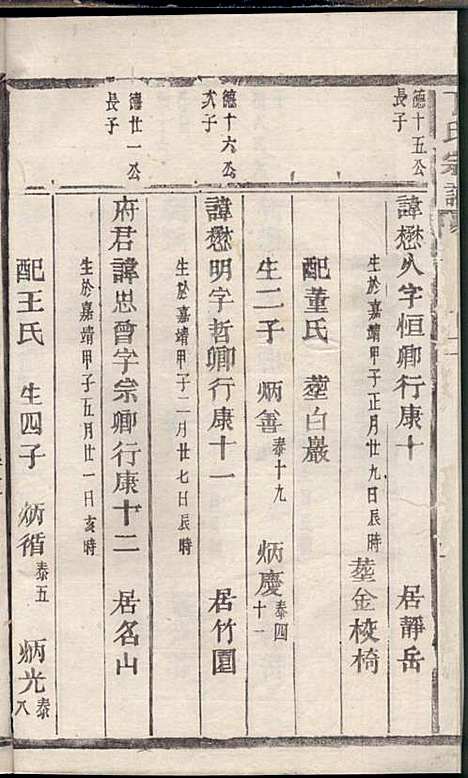 氏宗譜
德十五公
長子
諱懋久字恒卿行康十 居靜岳
生於嘉靖甲子正月廿九日辰時 塟金梭椅
配董氏 塟白巖
生二子 炳善 泰十九 炳慶 泰四十一
德十六公
弍子
諱懋明字哲卿行康十一 居竹園
生於嘉靖甲子二月廿七日辰時
德廿一公
長子
府君諱思曾字宗卿行康十二 居名山
生於嘉靖甲子五月廿一日亥時
配王氏 生四子 炳循 泰五 炳光 泰八